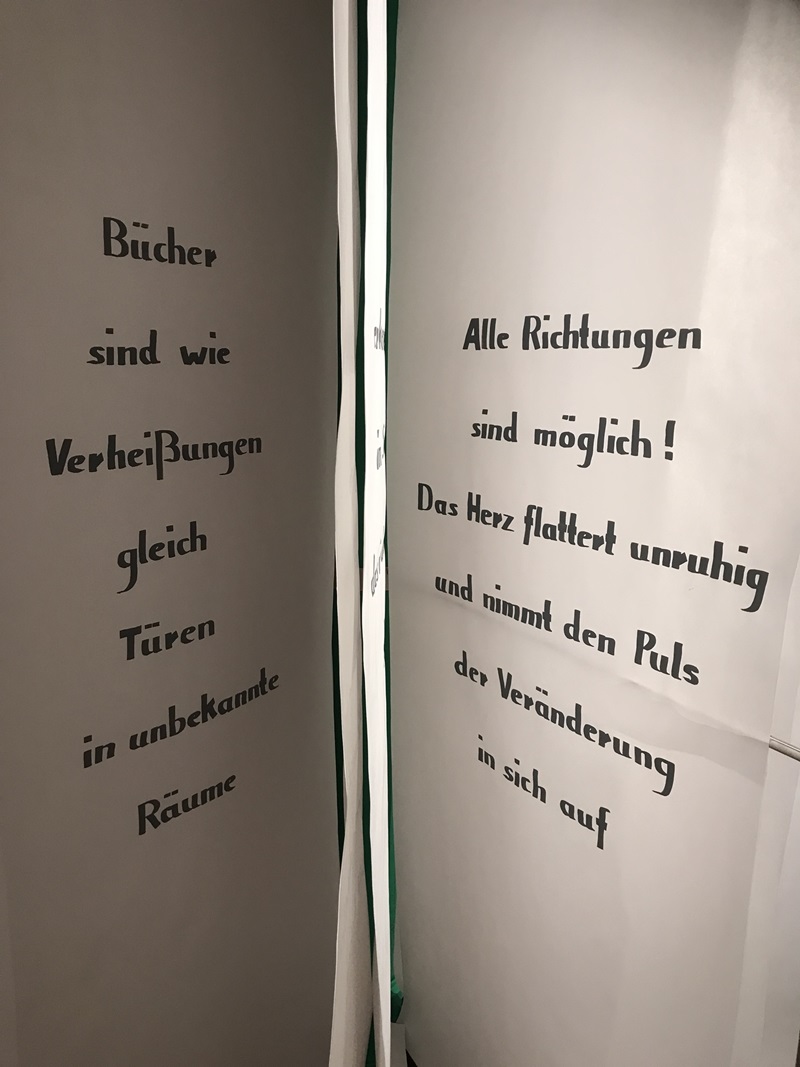 Bücher
sind wie
Verheißungen
gleich
Türen
in unbekannte
Räume
Alle Richtungen
sind möglich!
Das Herz flattert unruhig
und nimmt den Puls
der Veränderung
in sich auf